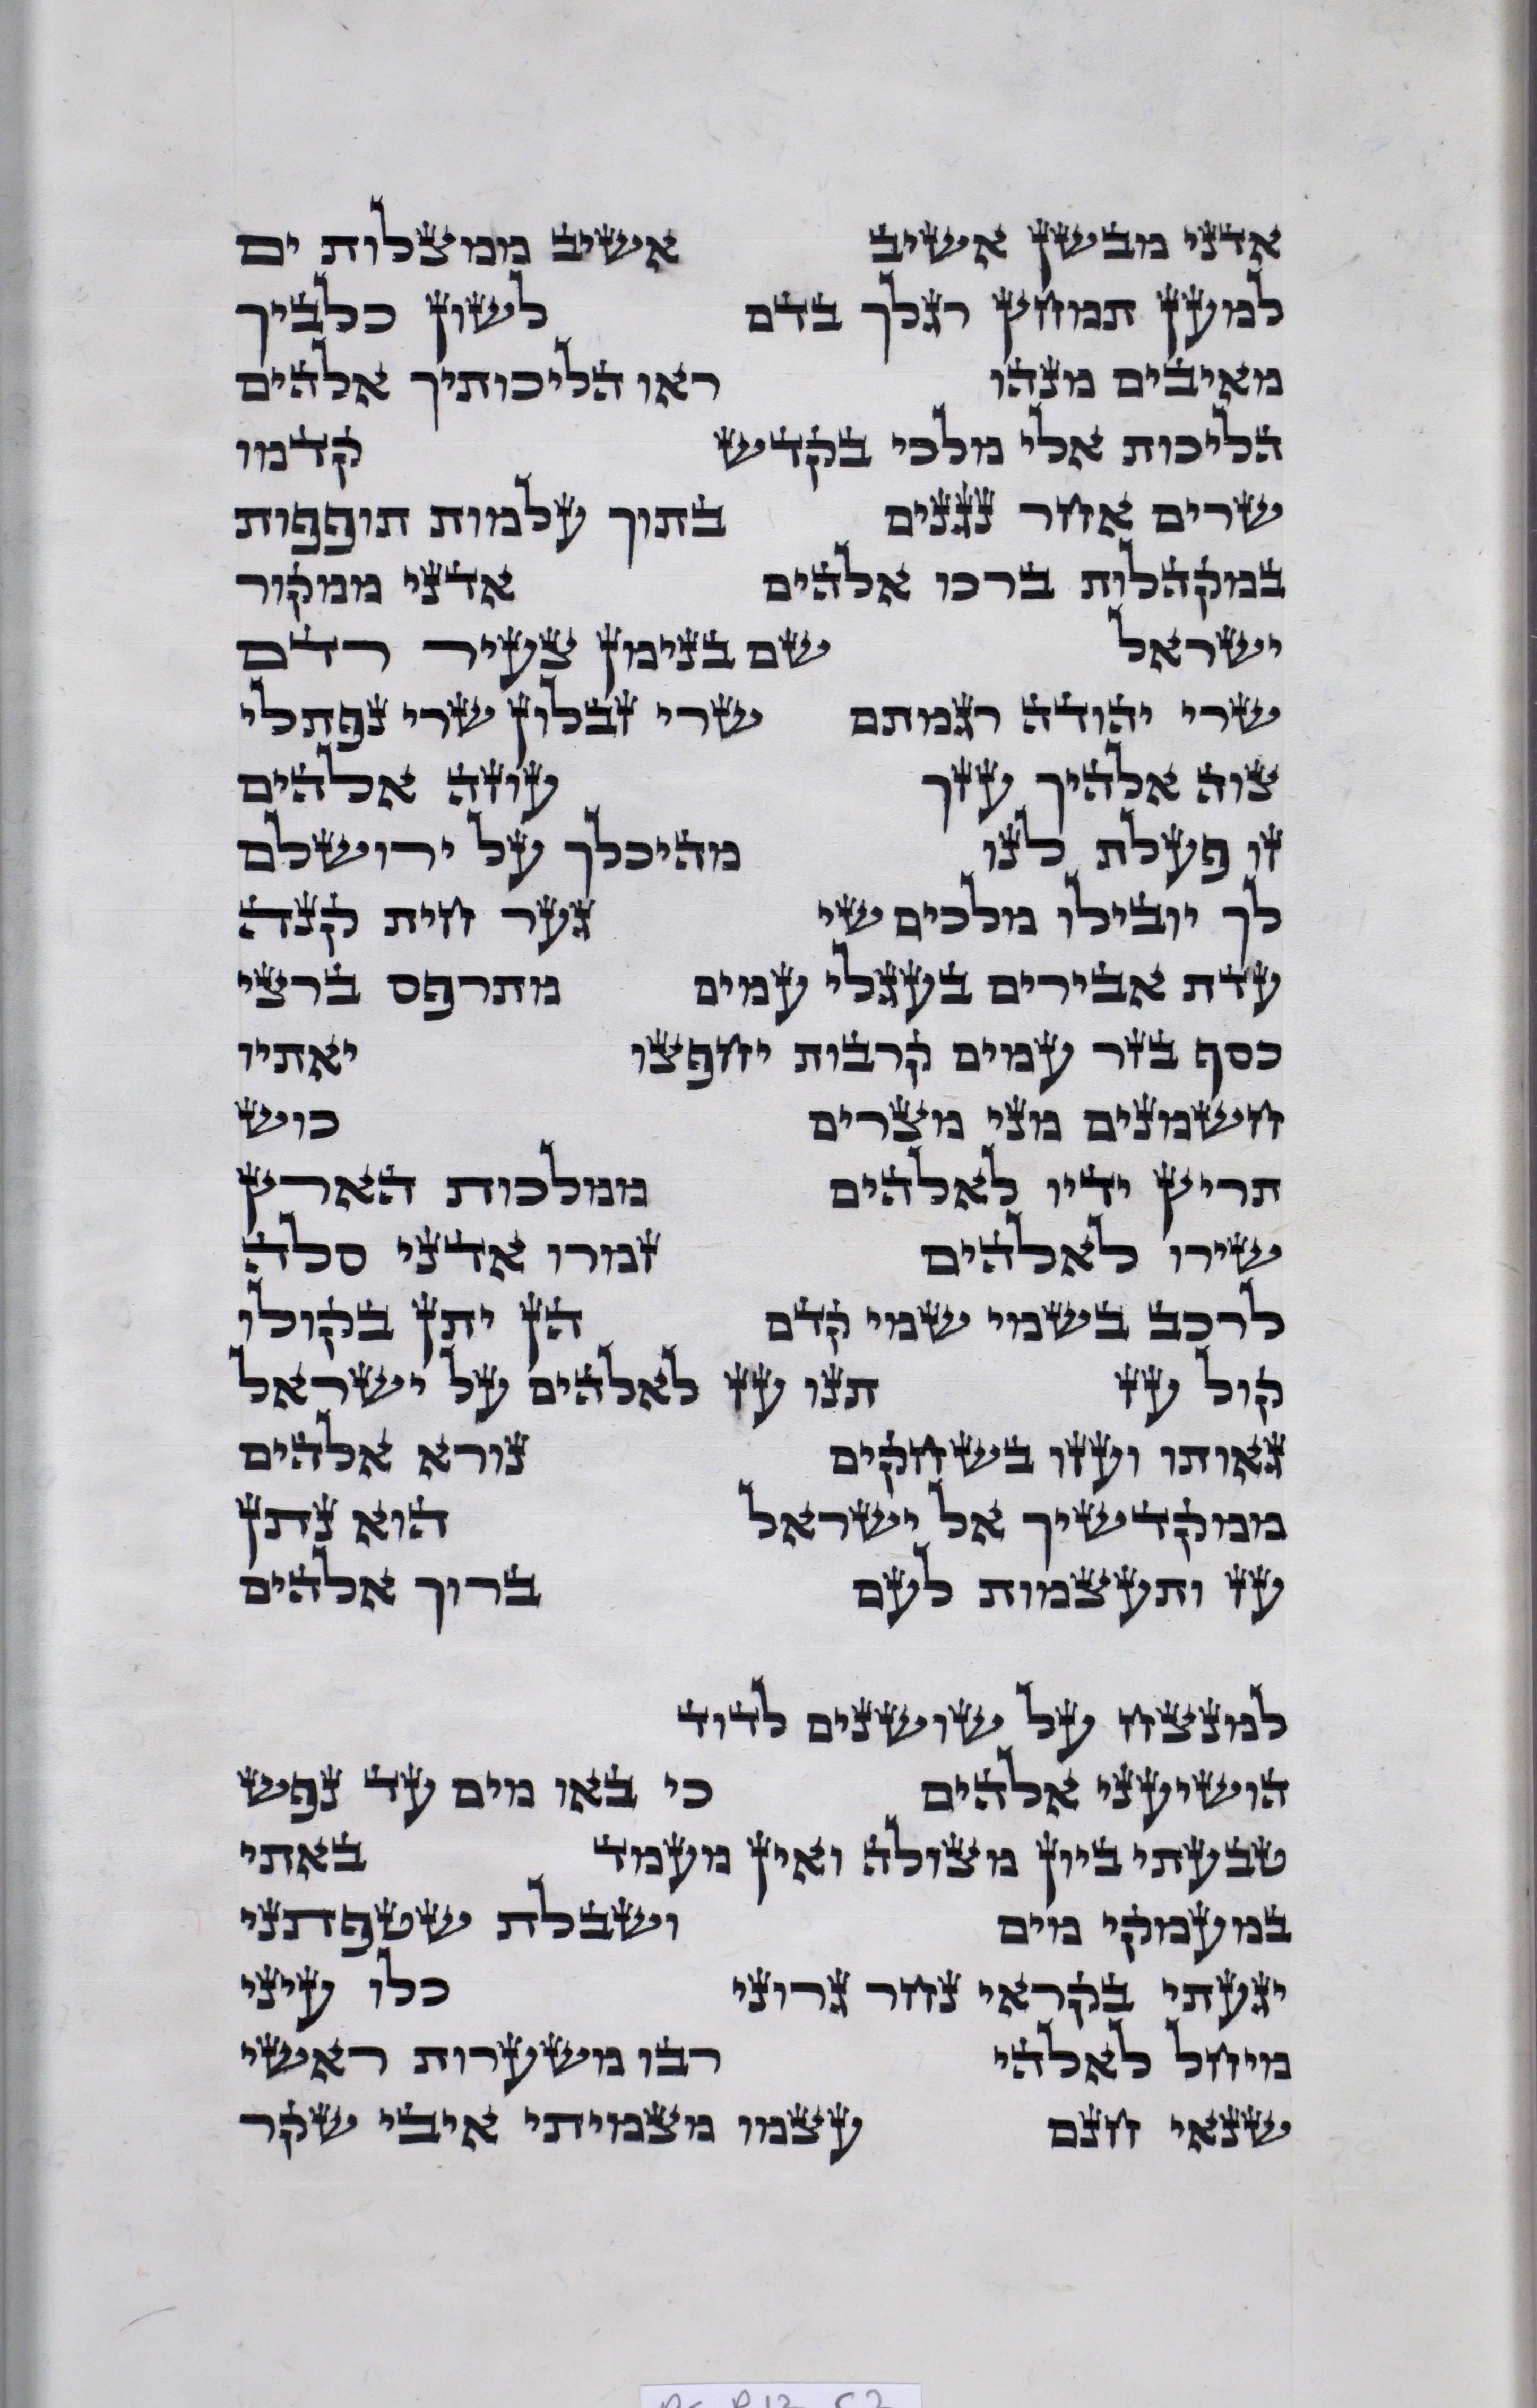 אדני מבשן אשיב אשיב ממצלות ים
למען תמחץ רגלך בדם לשון כלביך
מאיבים מנהו ראו הליכותיך אלהים
הליכות אלי מלכי בקדש קדמו
שרים אחר נגנים בתוך עלמות תופפות
במקהלות ברכו אלהים אדני ממקור
ישראל שם בנימן צעיר רדם
שרי יהודה רגמתם שרי זבלון שרי נפתלי
צוה אלהיך עזך עוזה אלהים
זו פעלת לנו מהיכלך על ירושלם
לך יובילו מלכים שי גער חית קנה
עדת אבירים בעגלי עמים מתרפס ברצי
כסף בזר עמים קרבות יחפצו יאתיו
חשמנים מני מצרים כוש
תריץ ידיו לאלהים ממלכות הארץ
שירו לאלהים זמרו אדני סלה
לרכב בשמי שמי קדם הן יתן בקולו
קול עז תנו עז לאלהים על ישראל
גאותו ועזו בשחקים נורא אלהים
ממקדשיך אל ישראל הוא נתן
עז ותעצמות לעם ברוך אלהים
למנצח על שושנים לדוד
הושיעני אלהים כי באו מים עד נפש
טבעתי ביון מצולה ואין מעמד באתי
במעמקי מים ושבלת שטפתני
יגעתי בקראי נחר גרוני כלו עיני
מיחל לאלהי רבו משערות ראשי
שנאי חנם עצמו מצמיתי איבי שקר